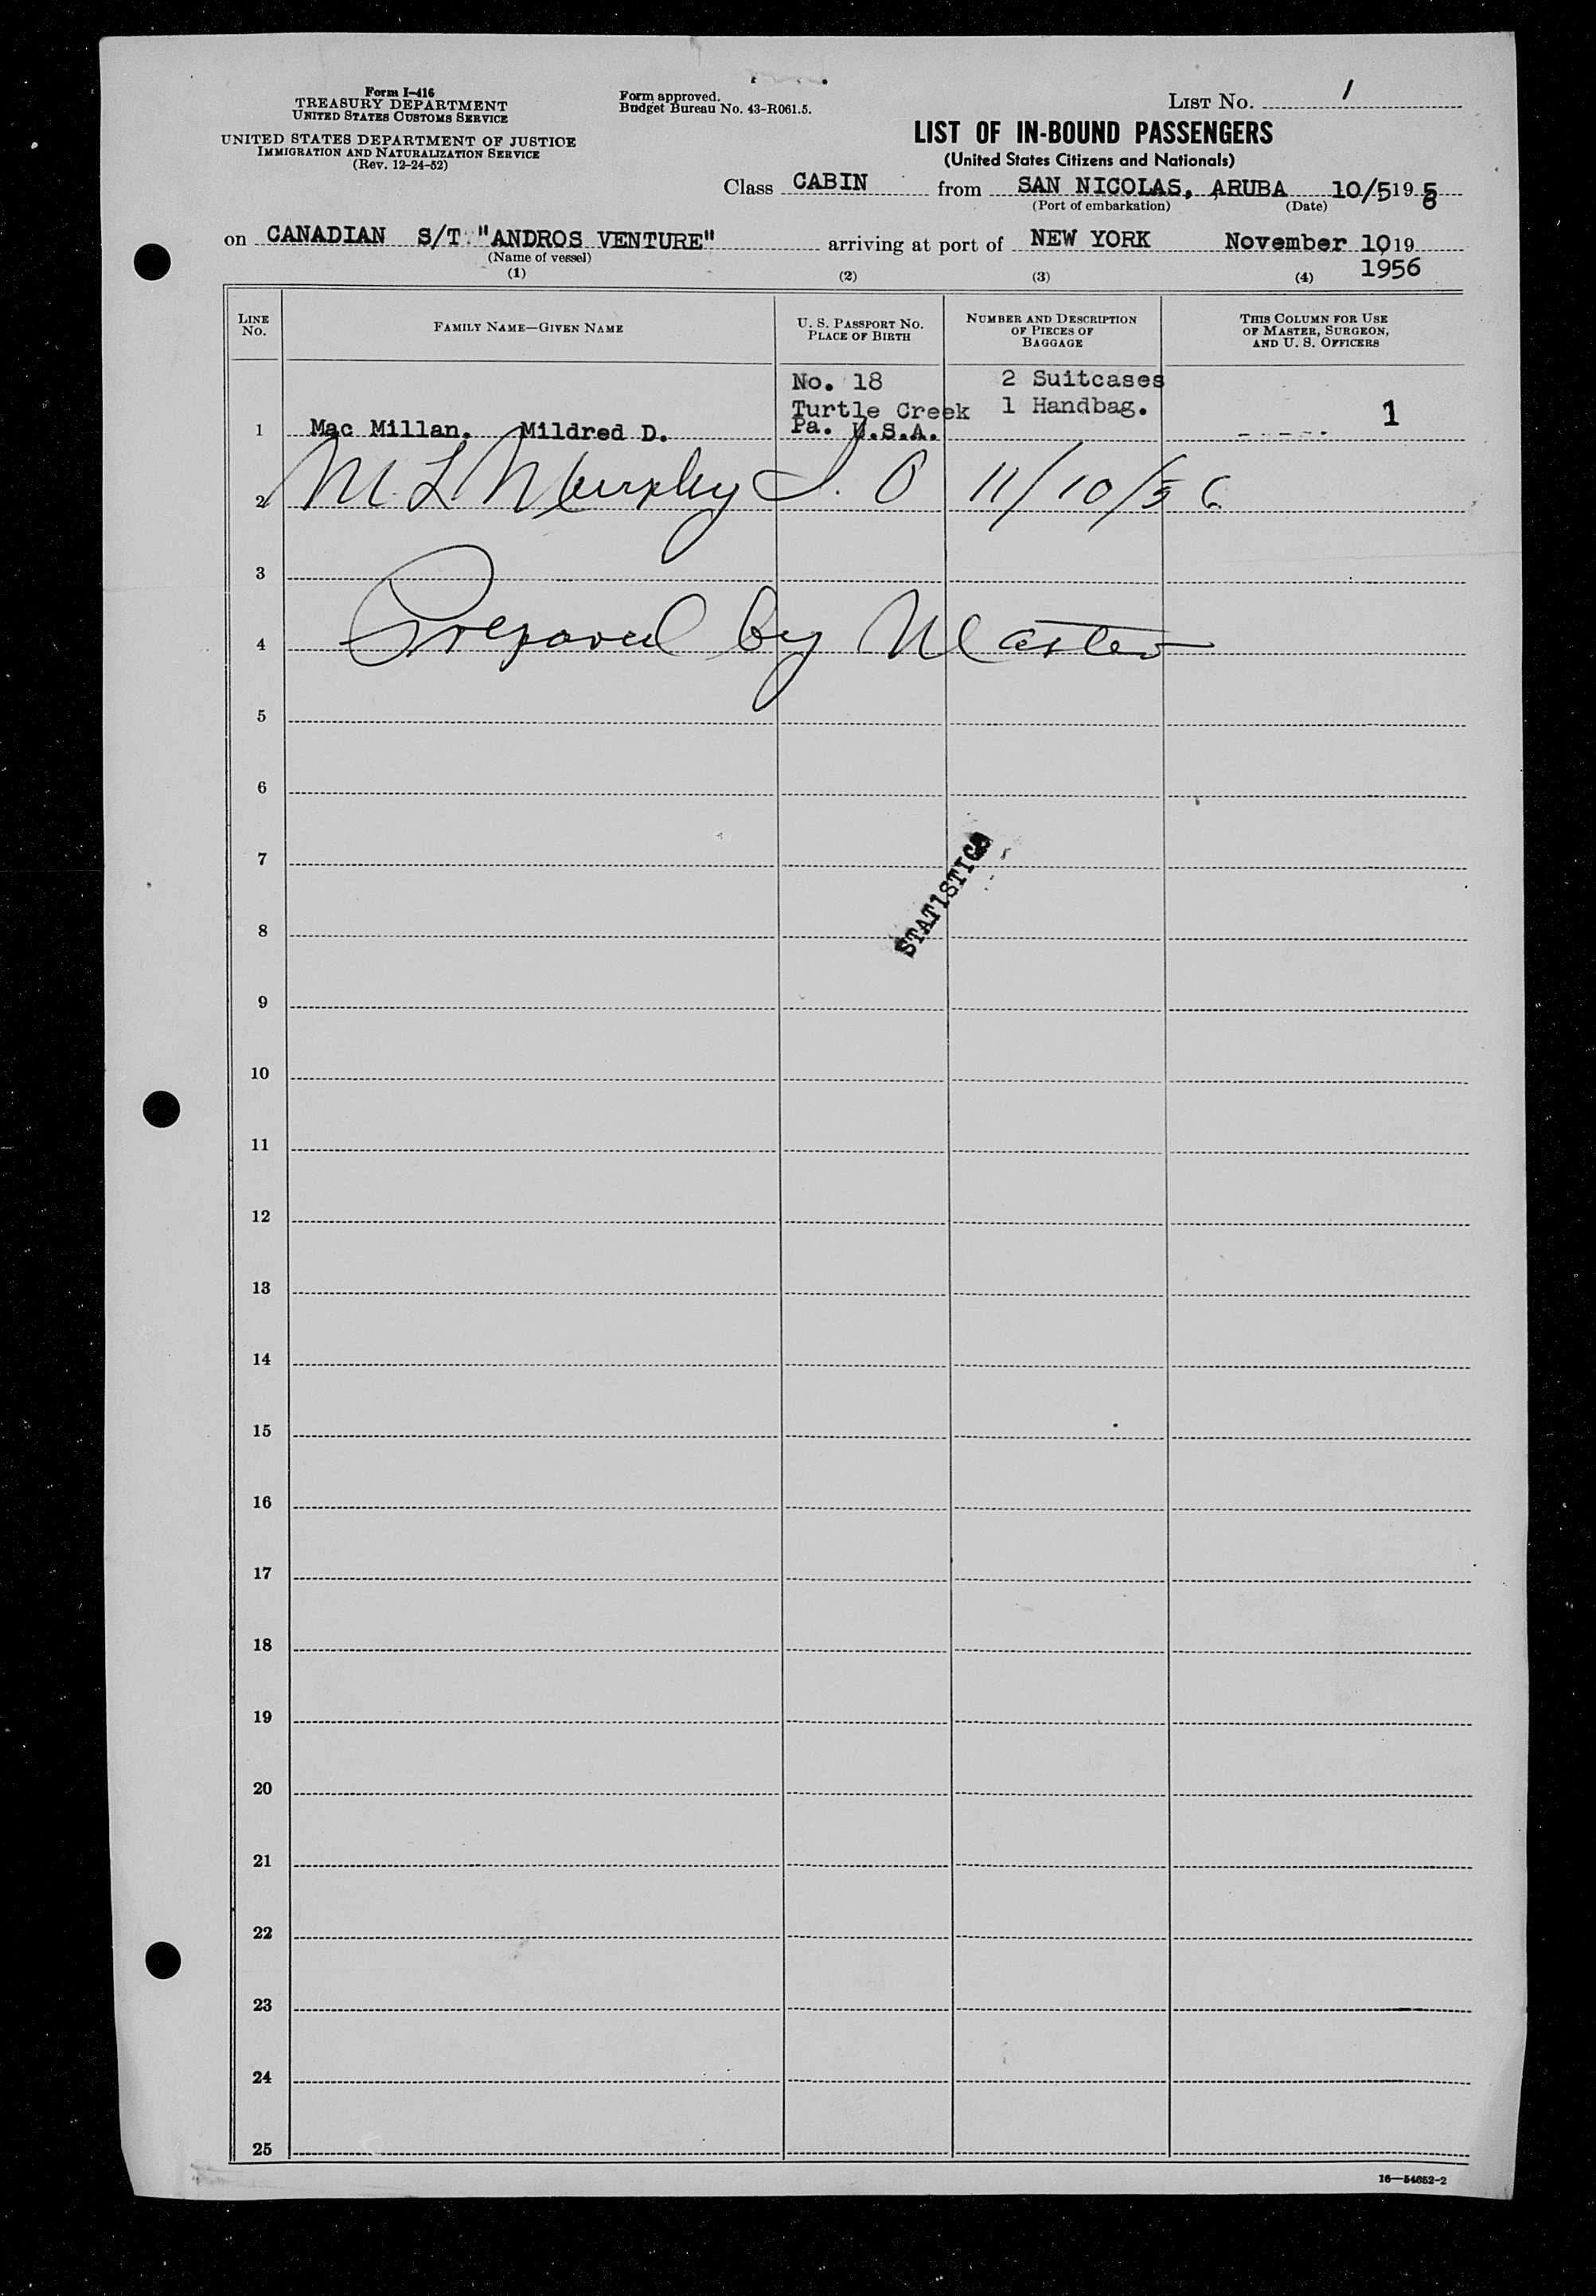 Form I-416
TREASURY DEPARTMENT
UNITED STATES CUSTOMS SERVICE
UNITED STATES DEPARTMENT OF JUSTICE
IMMIGRATION AND NATURALIZATION SERVICE
(Rev. 12-24-52)
Form approved.
Budget Bureau No. 43-R061.5.
LIST No. 1
LIST OF IN-BOUND PASSENGERS
(United States Citizens and Nationals)
Class CABIN from SAN NICOLAS, ARUBA 10/5 19 5
(Port of embarkation) (Date)
on CANADIAN S/T "ANDROS VENTURE" arriving at port of NEW YORK November 10 19
(Name of vessel) 1956
(1) (2) (3) (4)
LINE No.
FAMILY NAME—GIVEN NAME
U. S. PASSPORT No.
PLACE OF BIRTH
NUMBER AND DESCRIPTION
OF PIECES OF
BAGGAGE
THIS COLUMN FOR USE
OF MASTER, SURGEON,
AND U. S. OFFICERS
No. 18 2 Suitcases
Turtle Creek 1 Handbag. 1
1 Mac Millan, Mildred D. Pa. U.S.A.
2 M L Murphy I. O 11/10/56
3
4 Prepared by Master
5
6
7
STATISTICS
8
9
10
11
12
13
14
15
16
17
18
19
20
21
22
23
24
25
16—54652-2